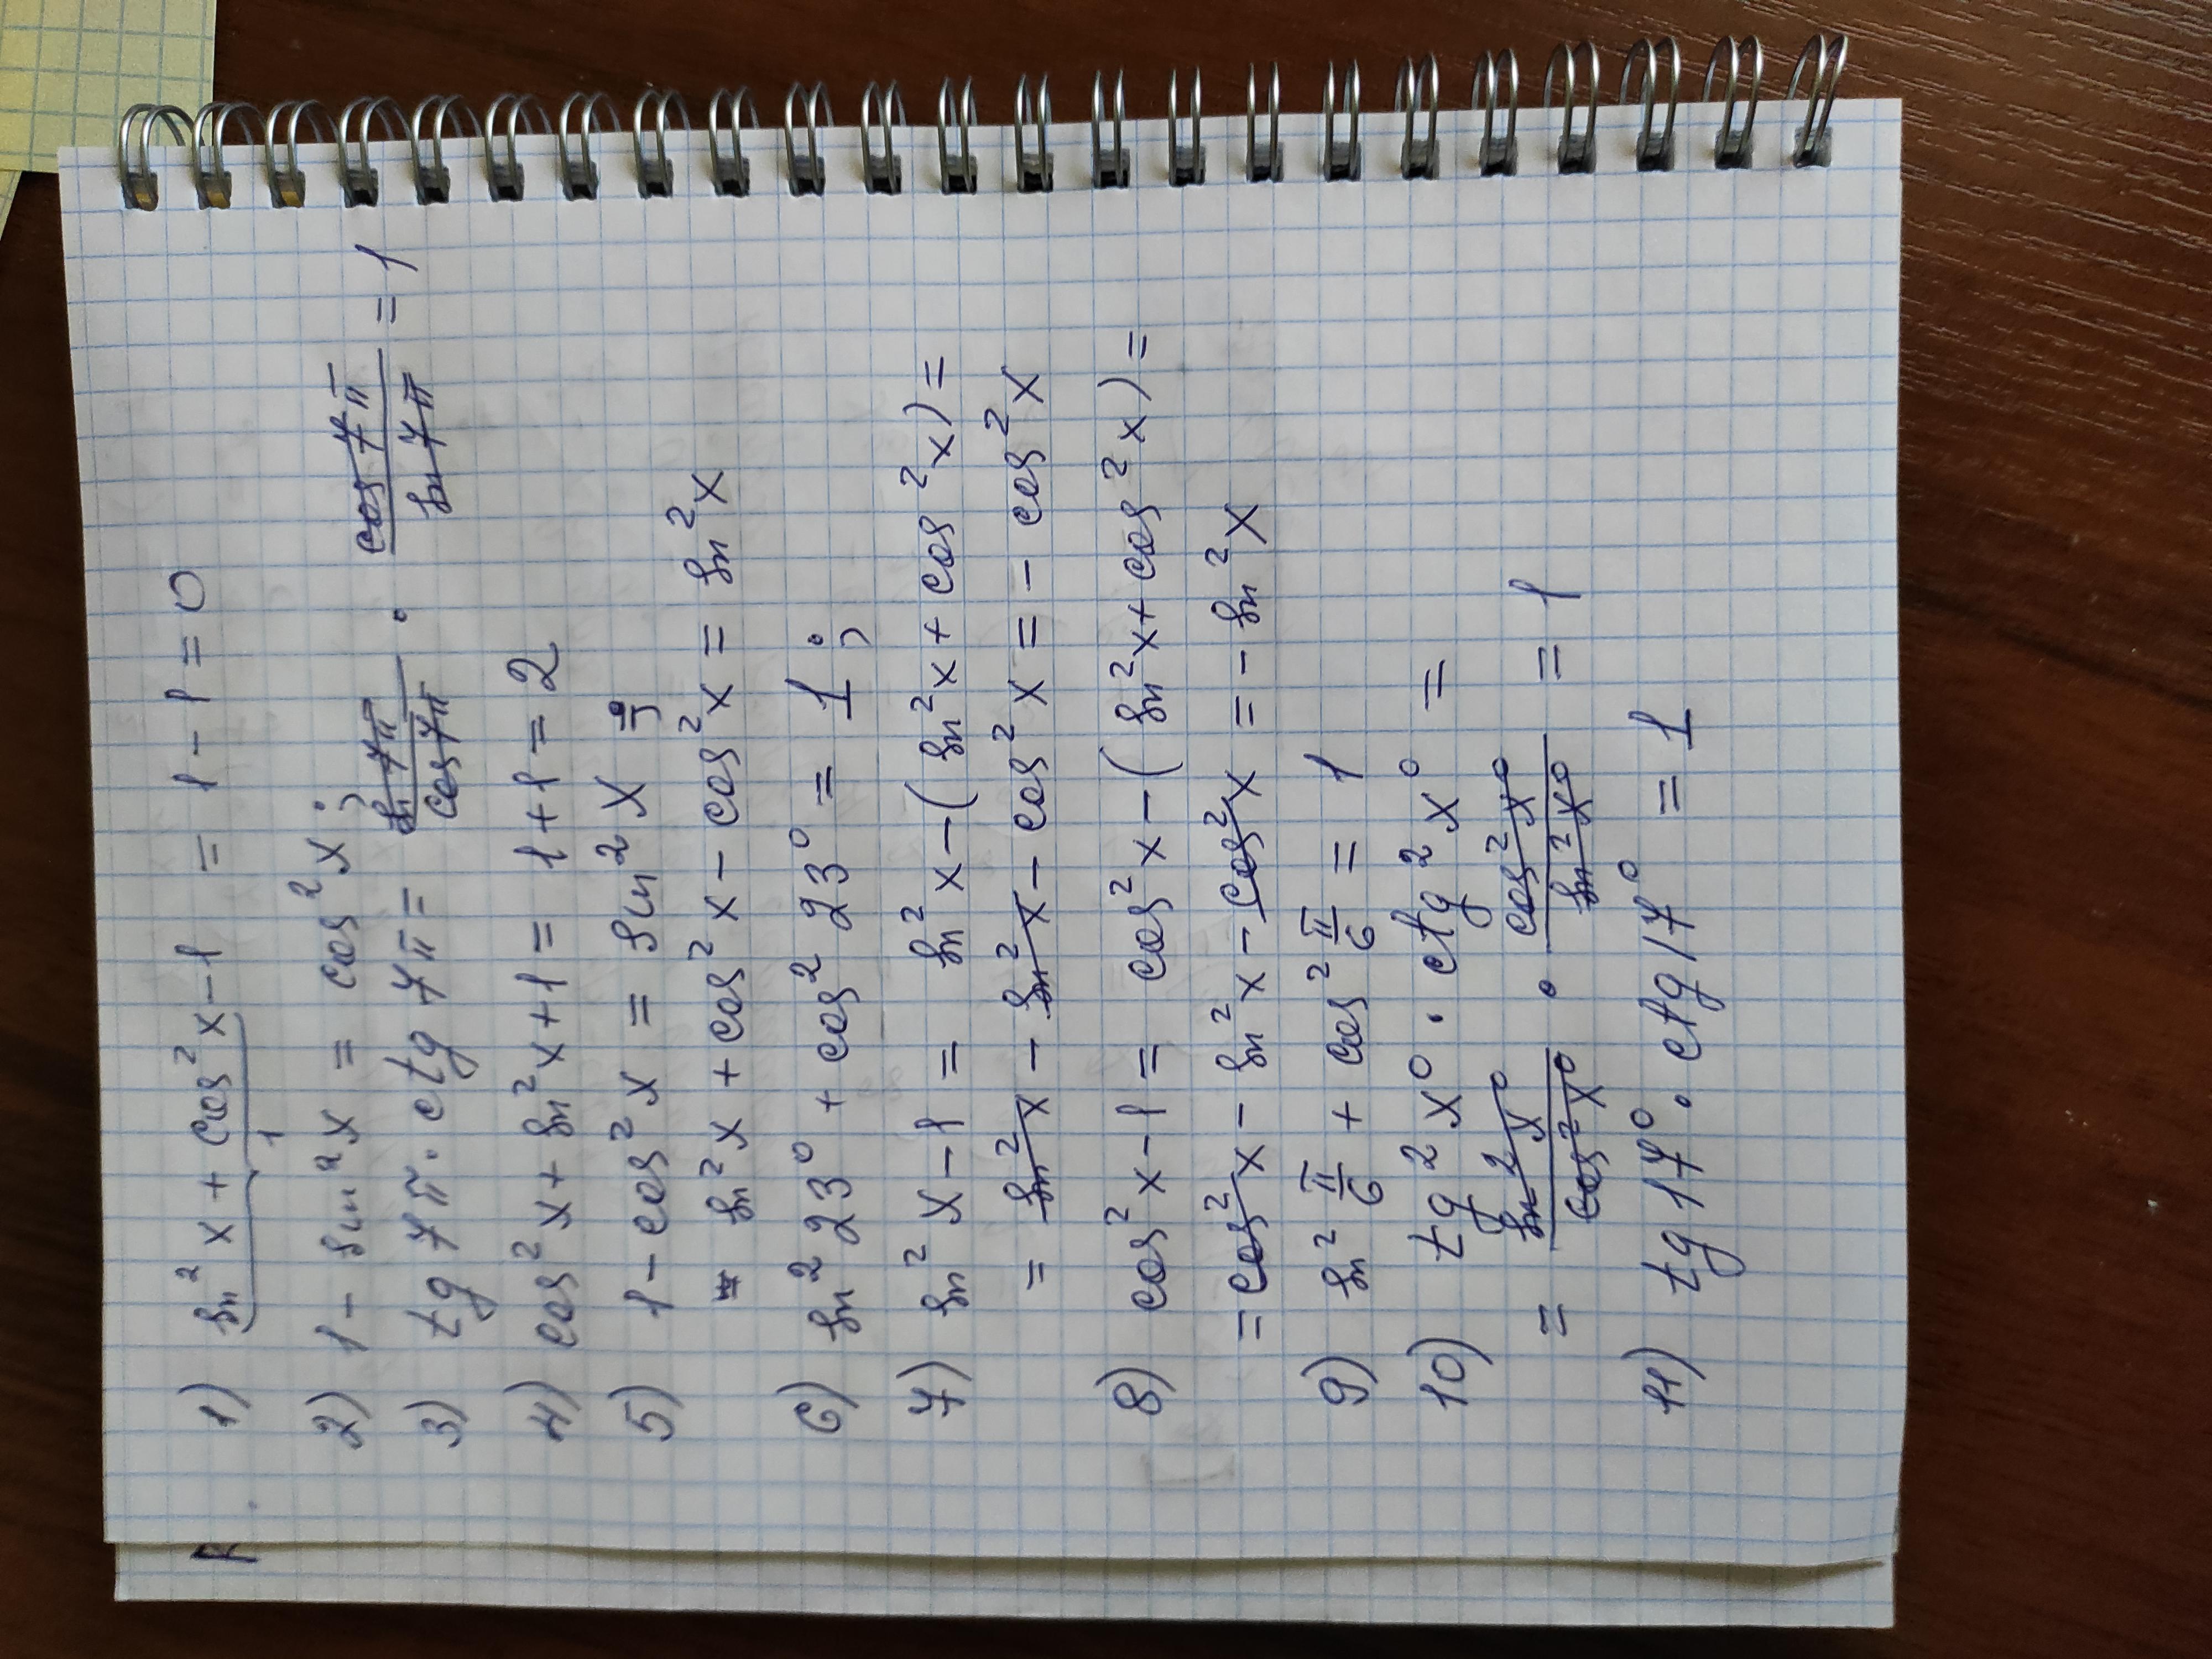 1) sin²x + cos²x - 1 = 1 - 1 = 0
1
2) 1 - sin²x = cos²x;
3) tg 7π · ctg 7π = sin 7π / cos 7π · cos 7π / sin 7π = 1
4) cos²x + sin²x + 1 = 1 + 1 = 2
5) 1 - cos²x = sin²x =
= sin²x + cos²x - cos²x = sin²x
6) sin²23° + cos²23° = 1;
7) sin²x - 1 = sin²x - (sin²x + cos²x) =
= sin²x - sin²x - cos²x = - cos²x
8) cos²x - 1 = cos²x - (sin²x + cos²x) =
= cos²x - sin²x - cos²x = - sin²x
9) sin² π/6 + cos² π/6 = 1
10) tg²x° · ctg²x° =
= sin²x° / cos²x° · cos²x° / sin²x° = 1
11) tg 17° · ctg 17° = 1